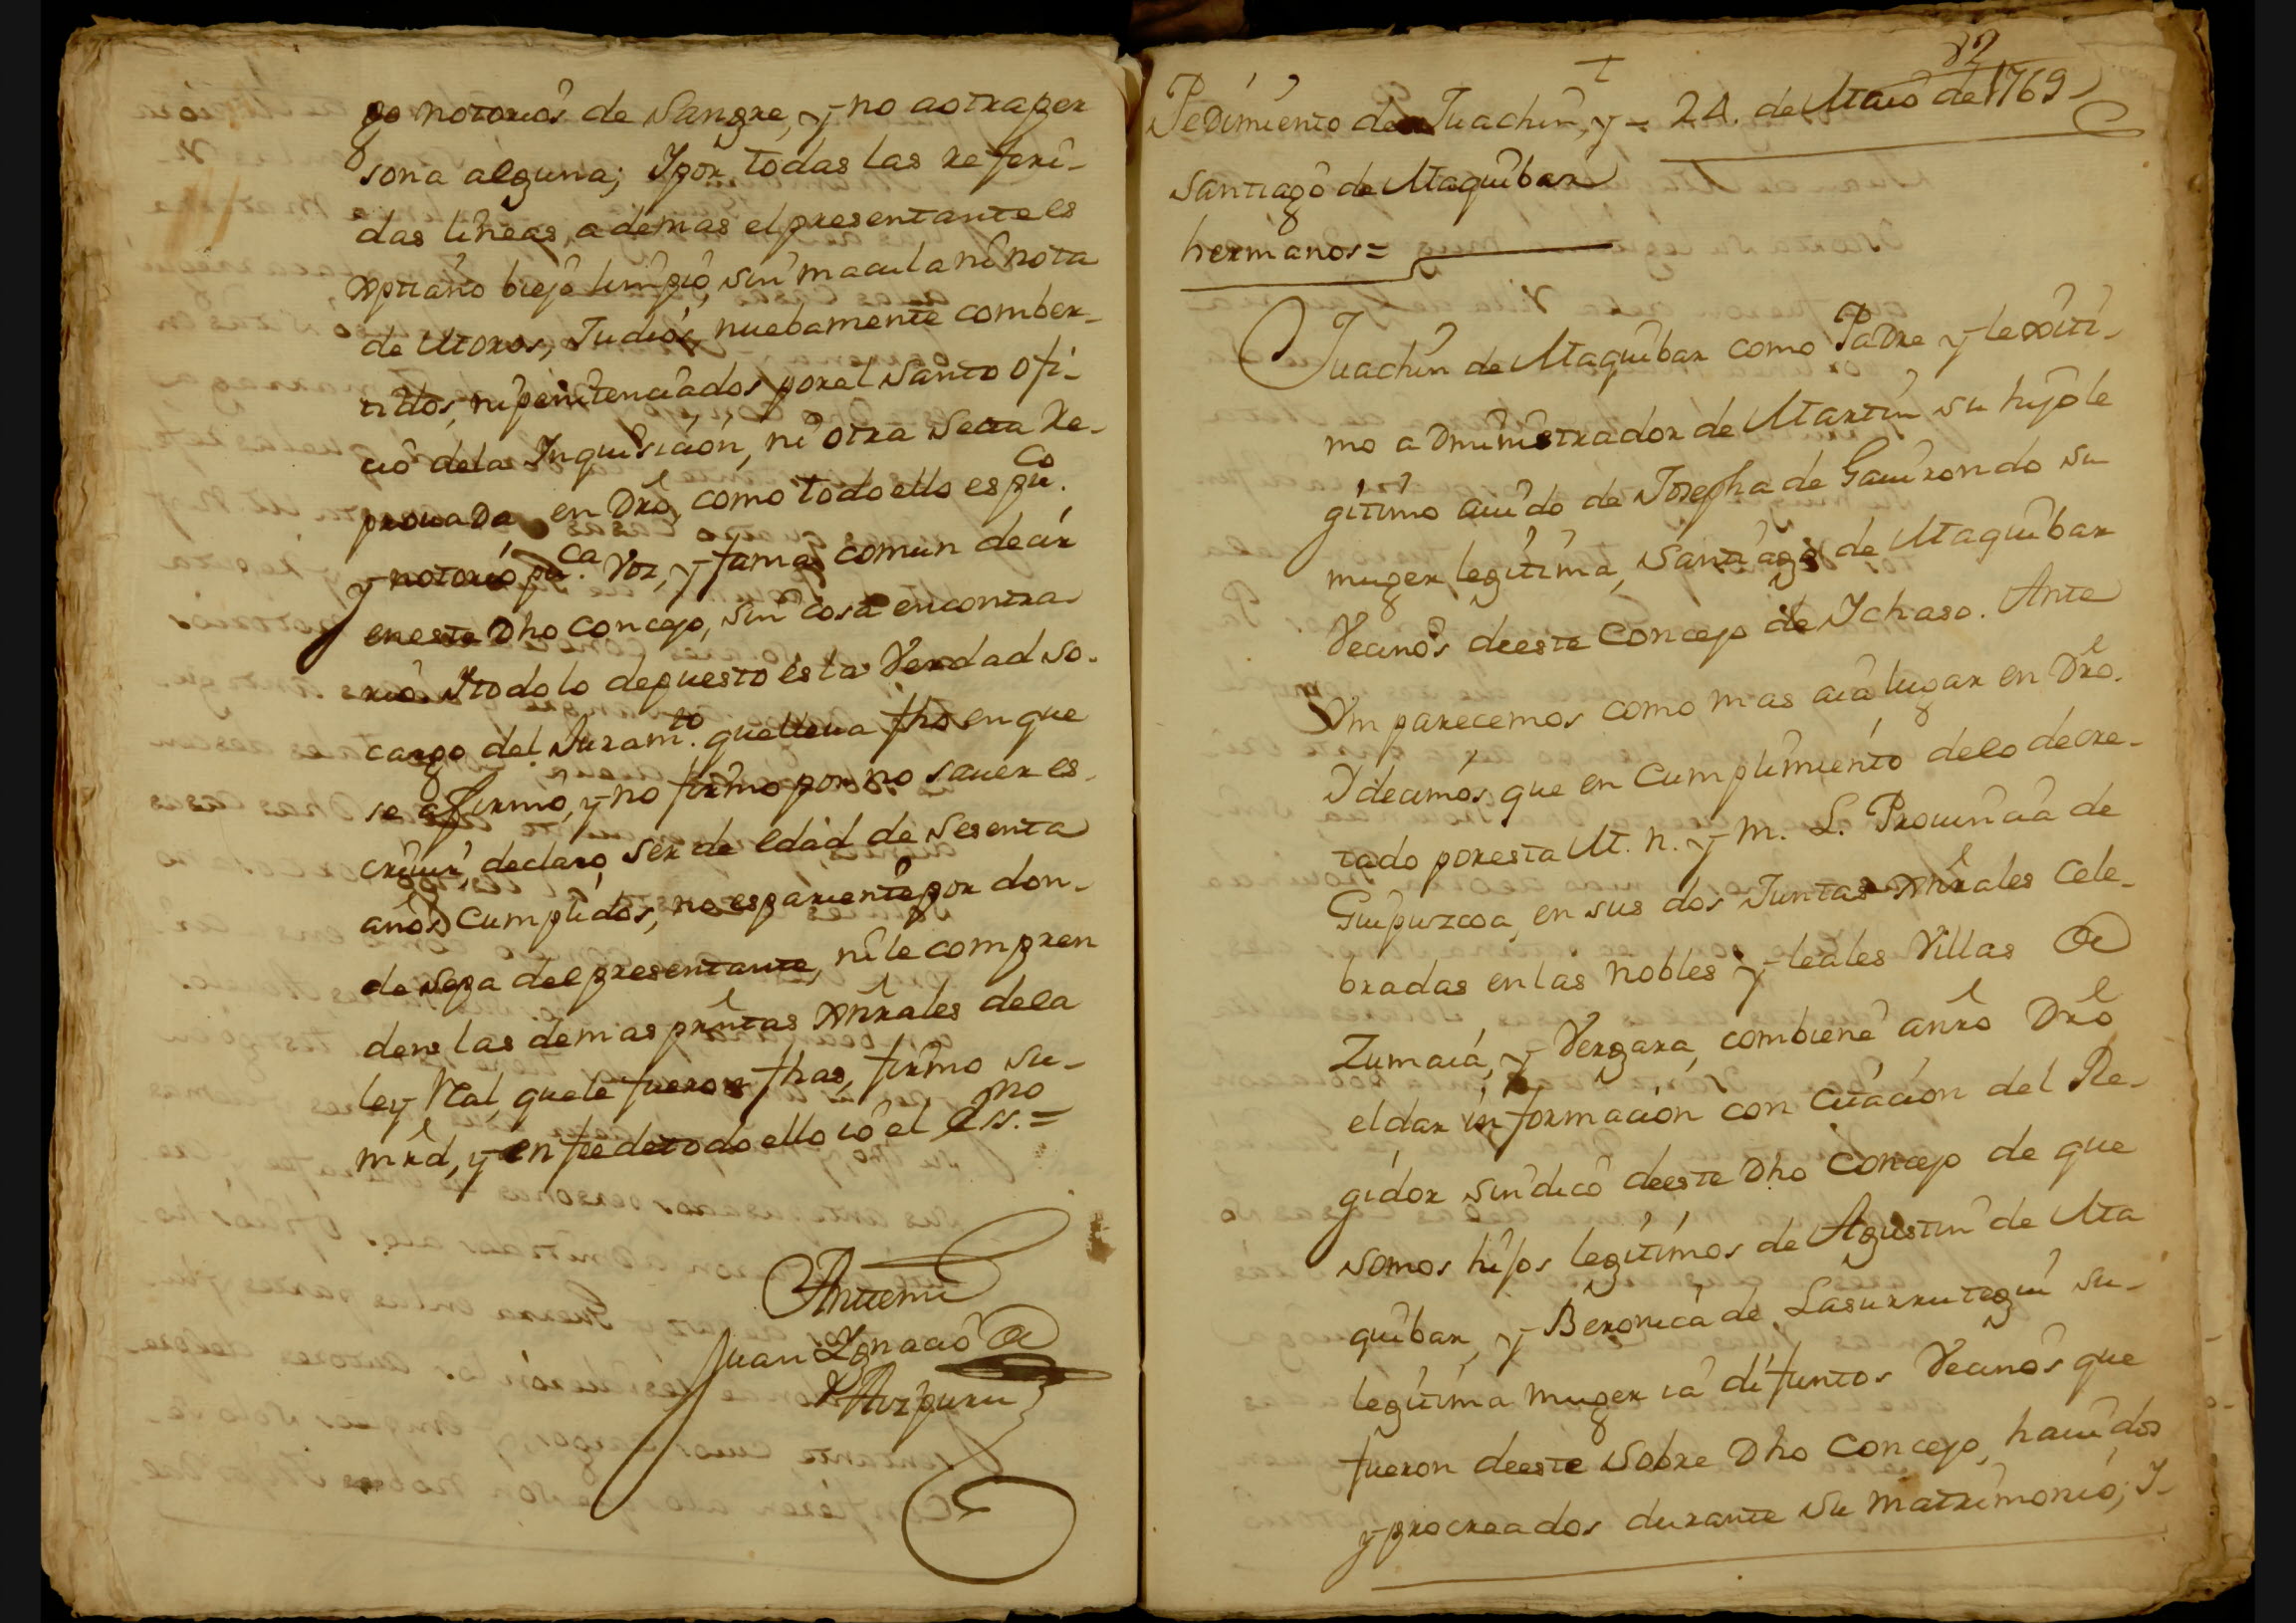 go notorios de Sangre, y no aotra per
sona alguna; Ypor todas las referi-
das lineas, ademas el presentante es
Xptiano biejo limpio, sin macula ni nota
de Moros, Judios, nuebamente comber-
tidos, ni penitenciados porel Santo ofi-
cio dela Inquisicion, ni otra Secta Re-
provada en Dro, como todo ello es pu.co
y notorio pu.ca Voz, y fama comun decir
en este Dho Concejo, sin cosa encontra-
rio. Ytodo lo depuesto es la Verdad so-
cargo del Juram.to quelleva fho en que
se affirmo, y no firmo por no saver es-
crivir, declaro ser de edad de Sesenta
años Cumplidos, no es pariente por don-
de Sepa del presentante, ni le compren
den las demas prêntas Xnrales dela
ley Real, quele fueron fhas, firmo Su-
mrd, y en fee detodo ello io el Ess.no=
Antemi
Juan Ignacio de
Aizpuru
82
Pedimiento de Juachin, y - 24. de Maio de 1769
Santiago de Maquibar
hermanos=
Juachin de Maquibar como Padre y lexiti-
mo administrador de Martin su hijo le
gitimo avido de Josepha de Gavirondo su
muger legitima, Santiago de Maquibar
Vecinos deeste Concejo de Ichaso. Ante
Vm parecemos como mas aia lugar en Dro.
Y decimos, que en Cumplimiento delo decre-
tado poresta M. N. y M. L. Provincia de
Guipuzcoa, en sus dos Juntas Xnrales Cele-
bradas en las Nobles y leales Villas de
Zumaia, y Vergara, combiene anro Dro
el dar informacion con Citacion del Re-
gidor Sindico deeste Dho Concejo de que
somos hijos legitimos de Agustin de Ma
quibar, y Beronica de Lasurrutegui su-
legitima muger ia difuntos Vecinos que
fueron deeste Sobre Dho Concejo, havidos
y procreados durante su matrimonio; Y-